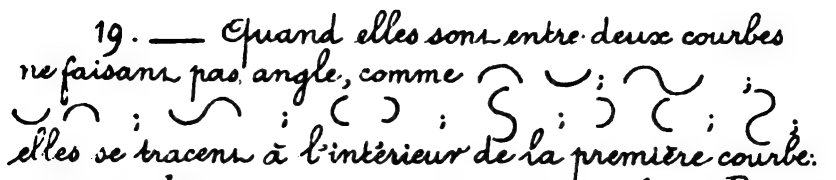 19. — Quand elles sont entre deux courbes
ne faisant pas angle, comme ⌒ ⌣ ; ∼ ;
⌣ ⌒ ; ∽ ; ( ) ; S ; ) ( ; Ƨ ;
elles se tracent à l'intérieur de la première courbe: